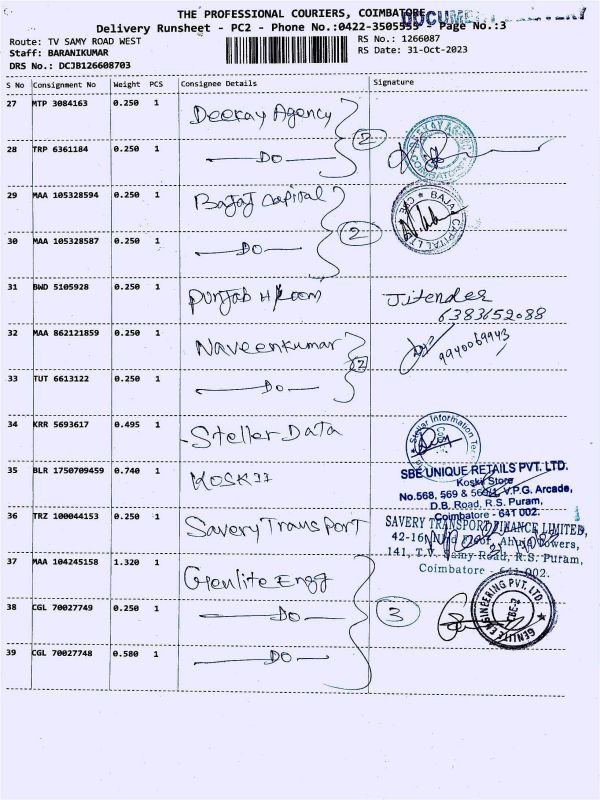 THE PROFESSIONAL COURIERS, COIMBATORE
DOCUMENT
Delivery Runsheet - PC2 - Phone No.:0422-3505555 - Page No.:3
Route: TV SAMY ROAD WEST
RS No.: 1266087
Staff: BARANIKUMAR
RS Date: 31-Oct-2023
DRS No.: DCJB126608703
S No Consignment No Weight PCS Consignee Details Signature
27 MTP 3084163 0.250 1 Deekay Agency
28 TRP 6361184 0.250 1 DO
2
29 MAA 105328594 0.250 1 Bajaj Capital
30 MAA 105328587 0.250 1 DO
2
BAJAJ CAPITAL LTD CBE
31 BWD 5105928 0.250 1 Punjab H/Loom Jitender
6383652088
32 MAA 862121859 0.250 1 Naveenkumar
9940069943
33 TUT 6613122 0.250 1 DO
2
34 KRR 5693617 0.495 1 Steller Data
Stellar Information
35 BLR 1750709459 0.740 1 KOSKII
SBE UNIQUE RETAILS PVT. LTD.
Koskii Store
No.568, 569 & V.P.G. Arcade,
D.B. Road, R.S. Puram,
Coimbatore - 641 002.
36 TRZ 100044153 0.250 1 Savery Transport
SAVERY TRANSPORT FINANCE LIMITED,
42-16, Floor, Towers,
141, T.V. Samy Road, R.S. Puram,
Coimbatore - 641-002.
37 MAA 104245158 1.320 1 Genlite Engg
38 CGL 70027749 0.250 1 DO
3
GENLITE ENGINEERING PVT. LTD. CBE-2
39 CGL 70027748 0.580 1 DO